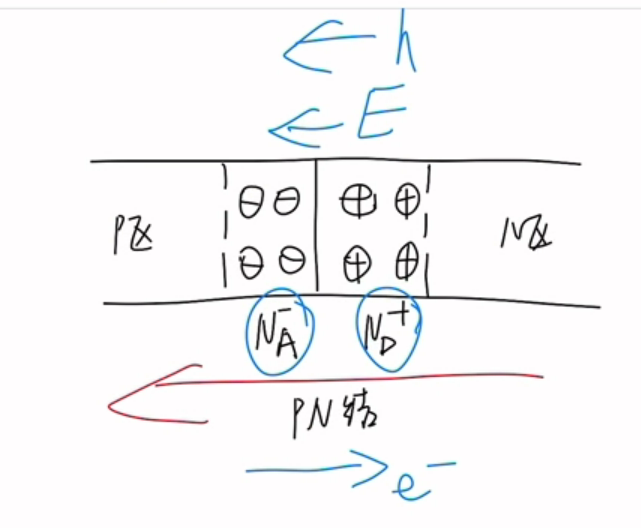 h
E
P区 ⊖⊖ ⊕⊕ N区
⊖⊖ ⊕⊕
N_A^- N_D^+
PN结
e^-